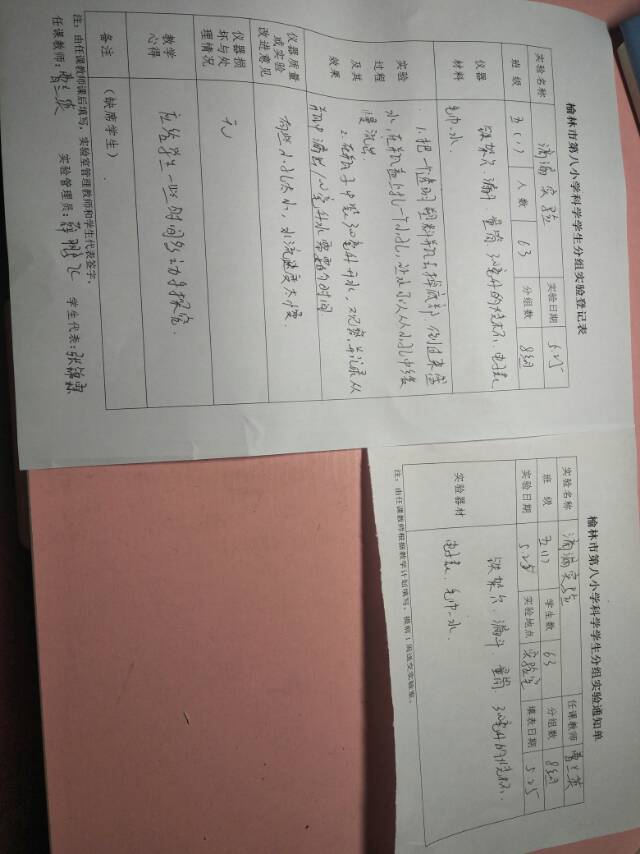 榆林市第八小学科学学生分组实验登记表
实验名称 滴漏实验 实验日期 5.25
班级 五(1) 人数 63 分组数 8组
仪器材料 铁架台、漏斗、量筒、300毫升的烧杯、电子表
毛巾、水
实验过程及其效果 1.把一个透明塑料瓶去掉底部,倒过来
水,在瓶盖上扎一个小孔,让水可以从小孔中缓
慢流出
2.在瓶子中装300毫升水,观察并记录从
瓶中滴出 毫升水需要的时间
仪器质量或实验改进意见 有些小孔太小,水流速度太慢。
仪器损坏与处理情况 无
教学心得 应给学生一些时间多动手探究。
备注 (缺席学生)
注:由任课教师课后填写,实验室管理教师和学生代表签字。
任课教师: 实验管理员: 学生代表:张锦
榆林市第八小学科学学生分组实验通知单
实验名称 滴漏实验 任课教师
班级 五(1) 学生数 63 分组数 8组
实验日期 5.25 实验地点 实验室 填表日期 5.25
实验器材 铁架台、漏斗、量筒、300毫升的烧杯、
电子表、毛巾、水
注:由任课教师根据教学计划填写,提前1周送交实验室。